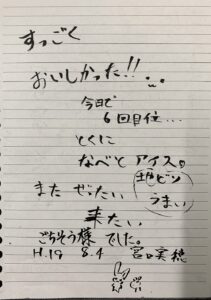 すっごく
おいしかった!!...
今日で
6回目位...
とくに
なべとアイス。
また ぜったい
うまい
来たい
ごちそう様 でした。
H.19 8.4 宮口実穂